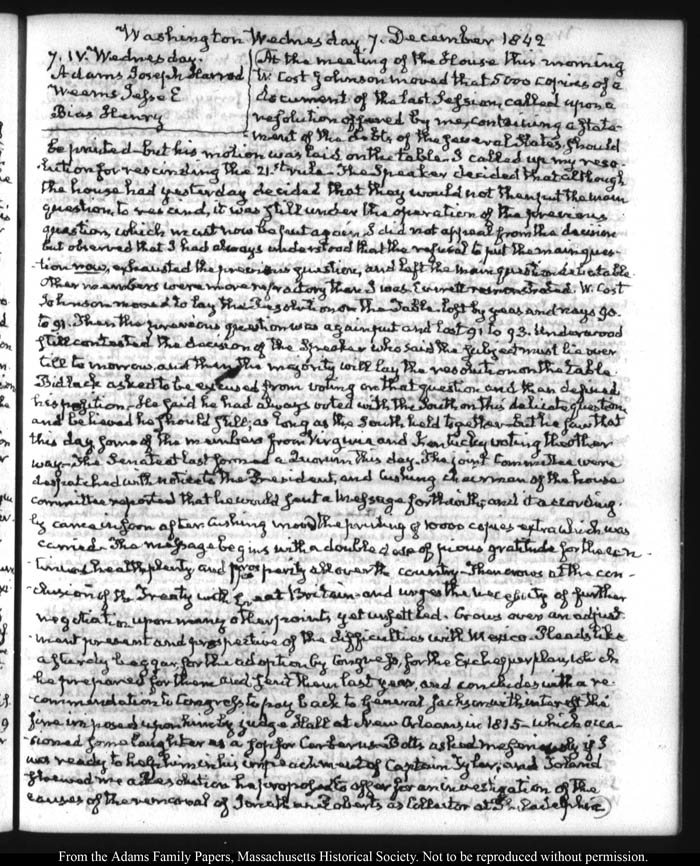 Washington Wednesday 7. December 1842
7. IV. Wednesday.
Adams Joseph Harrod
Weems Jesse E
Bias Henry
At the meeting of the House this morning
W. Cost Johnson moved that 5000 copies of a
document of the last Session, called upon a
resolution offered by me, containing a State-
ment of the debts, of the several States, should
be printed but his motion was laid on the table. I called up my reso-
lution for rescinding the 21st rule. The Speaker decided that although
the house had yesterday decided that they would not then put the main
question, to rescind, it was still under the operation of the previous
question, which must now be put again. I did not appeal from the decision
but observed that I had always understood that the refusal to put the main ques-
tion now, exhausted the previous question, and left the main question debatable.
Other members were more refractory than I was. Everett remonstrated. W. Cost
Johnson moved to lay the Resolution on the Table. lost by yeas and nays 90.
to 91. Then the previous question was again put and lost 91 to 93. Underwood
still contested the decision of the Speaker who said the subject must lie over
till to morrow, and then the majority will lay the resolution on the table.
Bidlack asked to be excused from voting on that question and then defined
his position. He said he had always voted with the South on this delicate question,
and believed he should still, as long as the South held together. But he saw that
this day some of the members from Virginia and Kentucky voting the other
way. The Senate at last formed a Quorum this day. The joint Committee were
despatched with notice to the President, and Cushing chairman of the house
committee reported that he would send a Message forthwith, and it according-
ly came in soon after. Cushing moved the printing of 10000 copies extra which was
carried. The message begins with a double dose of pious gratitude for the con-
tinued health plenty and prosperity all over the country. Then crows at the con-
clusion of the Treaty with Great Britain and urges the necessity of further
negotiation upon many other points yet unsettled. Crows over an adjust-
ment present and prospective of the difficulties with Mexico. Pleads like
a sturdy beggar, for the adoption by Congress, for the Exchequer plan, which
he prepared for them and sent them last year, and concludes with a re-
commendation to Congress to pay back to General Jackson with interest the
fine imposed upon him by judge Hall at New Orleans in 1815 which occa-
sioned some laughter as a sop for Cerberus. Botts asked me if I
was ready to help him in his impeachment of Captain Tyler, and
shewed me a Resolution he proposes to offer for an investigation of the
causes of the removal of Jonathan Roberts as Collector at Philadelphia
From the Adams Family Papers, Massachusetts Historical Society. Not to be reproduced without permission.